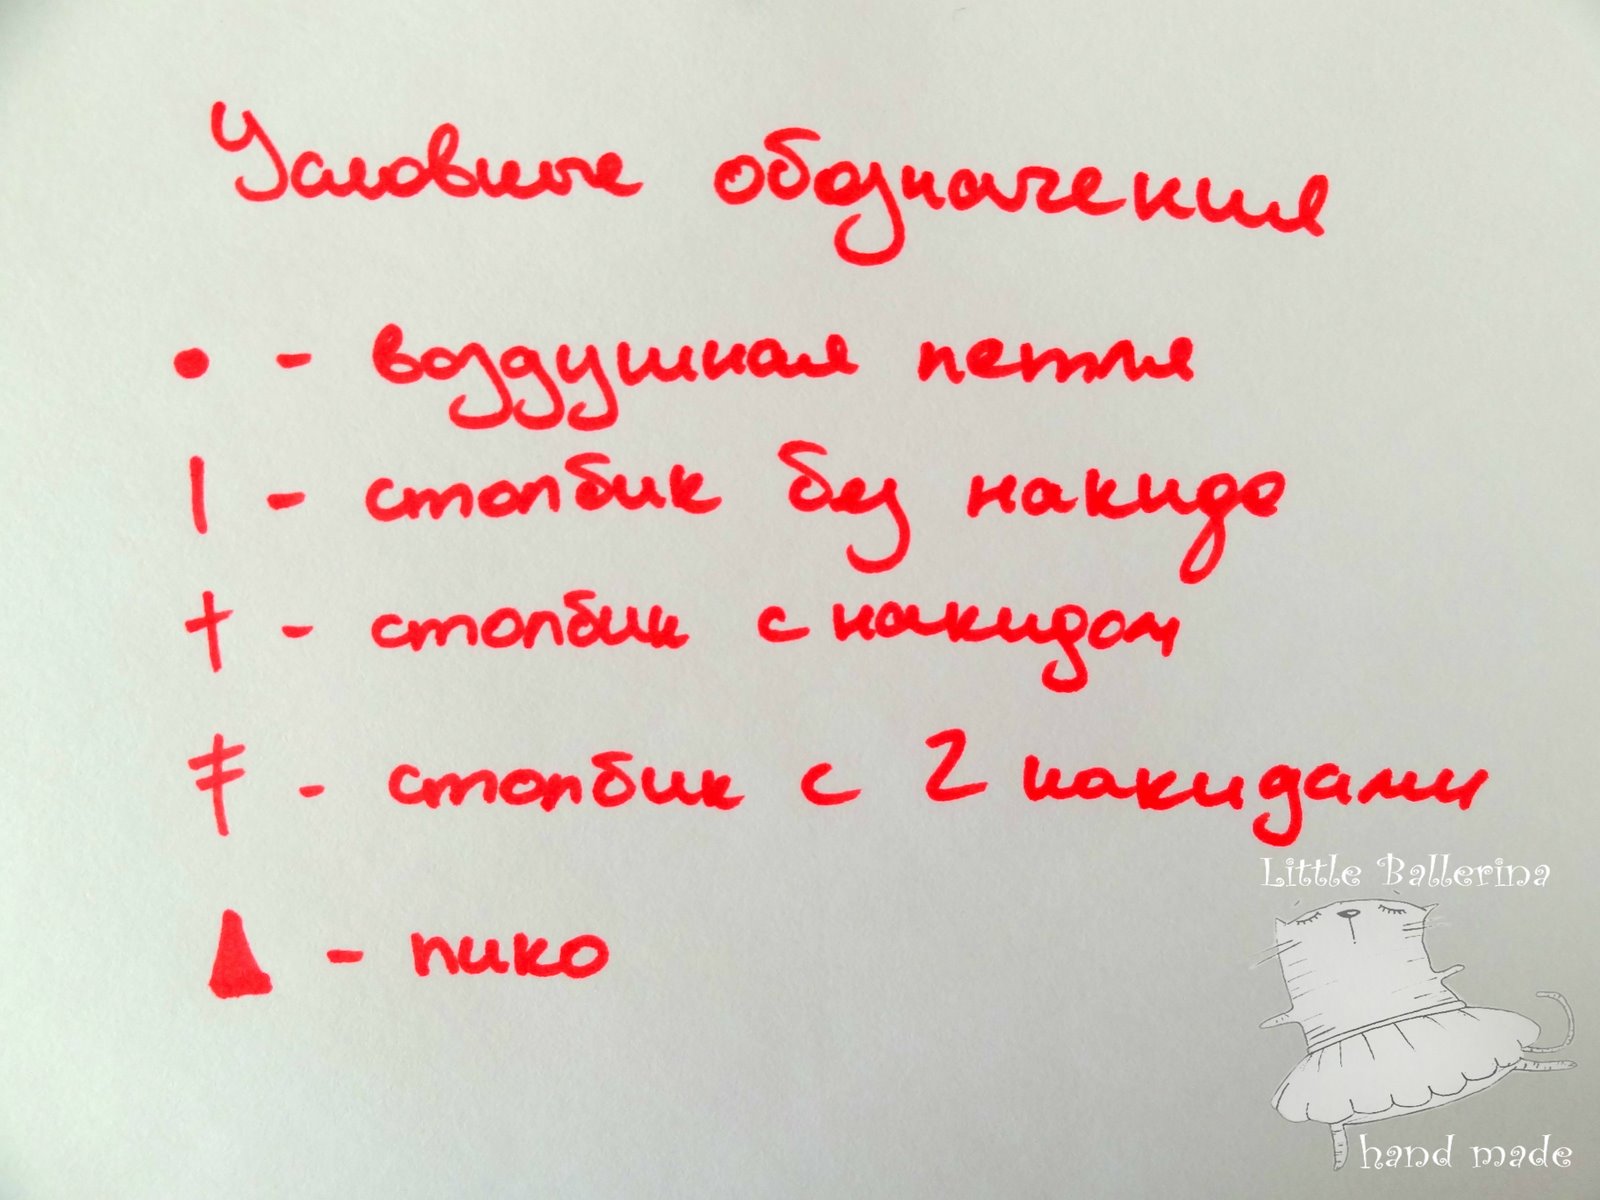 Условные обозначения
• - воздушная петля
| - столбик без накида
† - столбик с накидом
‡ - столбик с 2 накидами
▲ - пико
Little Ballerina
hand made